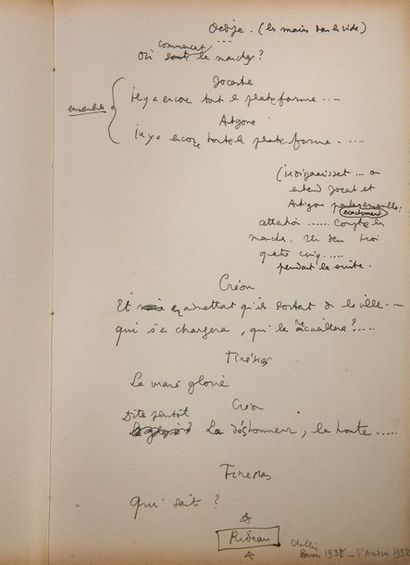 Oedipe. (les mains dans le vide)
...
commencent
Où sont les marches ?
Jocaste
ensemble
il y a encore toute la plate forme ....
Antigone
il y a encore toute la plate forme .....
(ils disparaissent ... on
entend Jocaste et
Antigone parler ensemble :
exactement
attention ...... compte les
marches. Un deux trois
quatre cinq .....
pendant la suite.
Créon
Et en admettant qu'ils sortent de la ville. —
qui s'en chargera, qui les accueillera ? ....
Tirésias
La vraie gloire
Dites plutôt
Créon
Le déshonneur, la honte .....
Tirésias
Qui sait ?
Rideau
1932